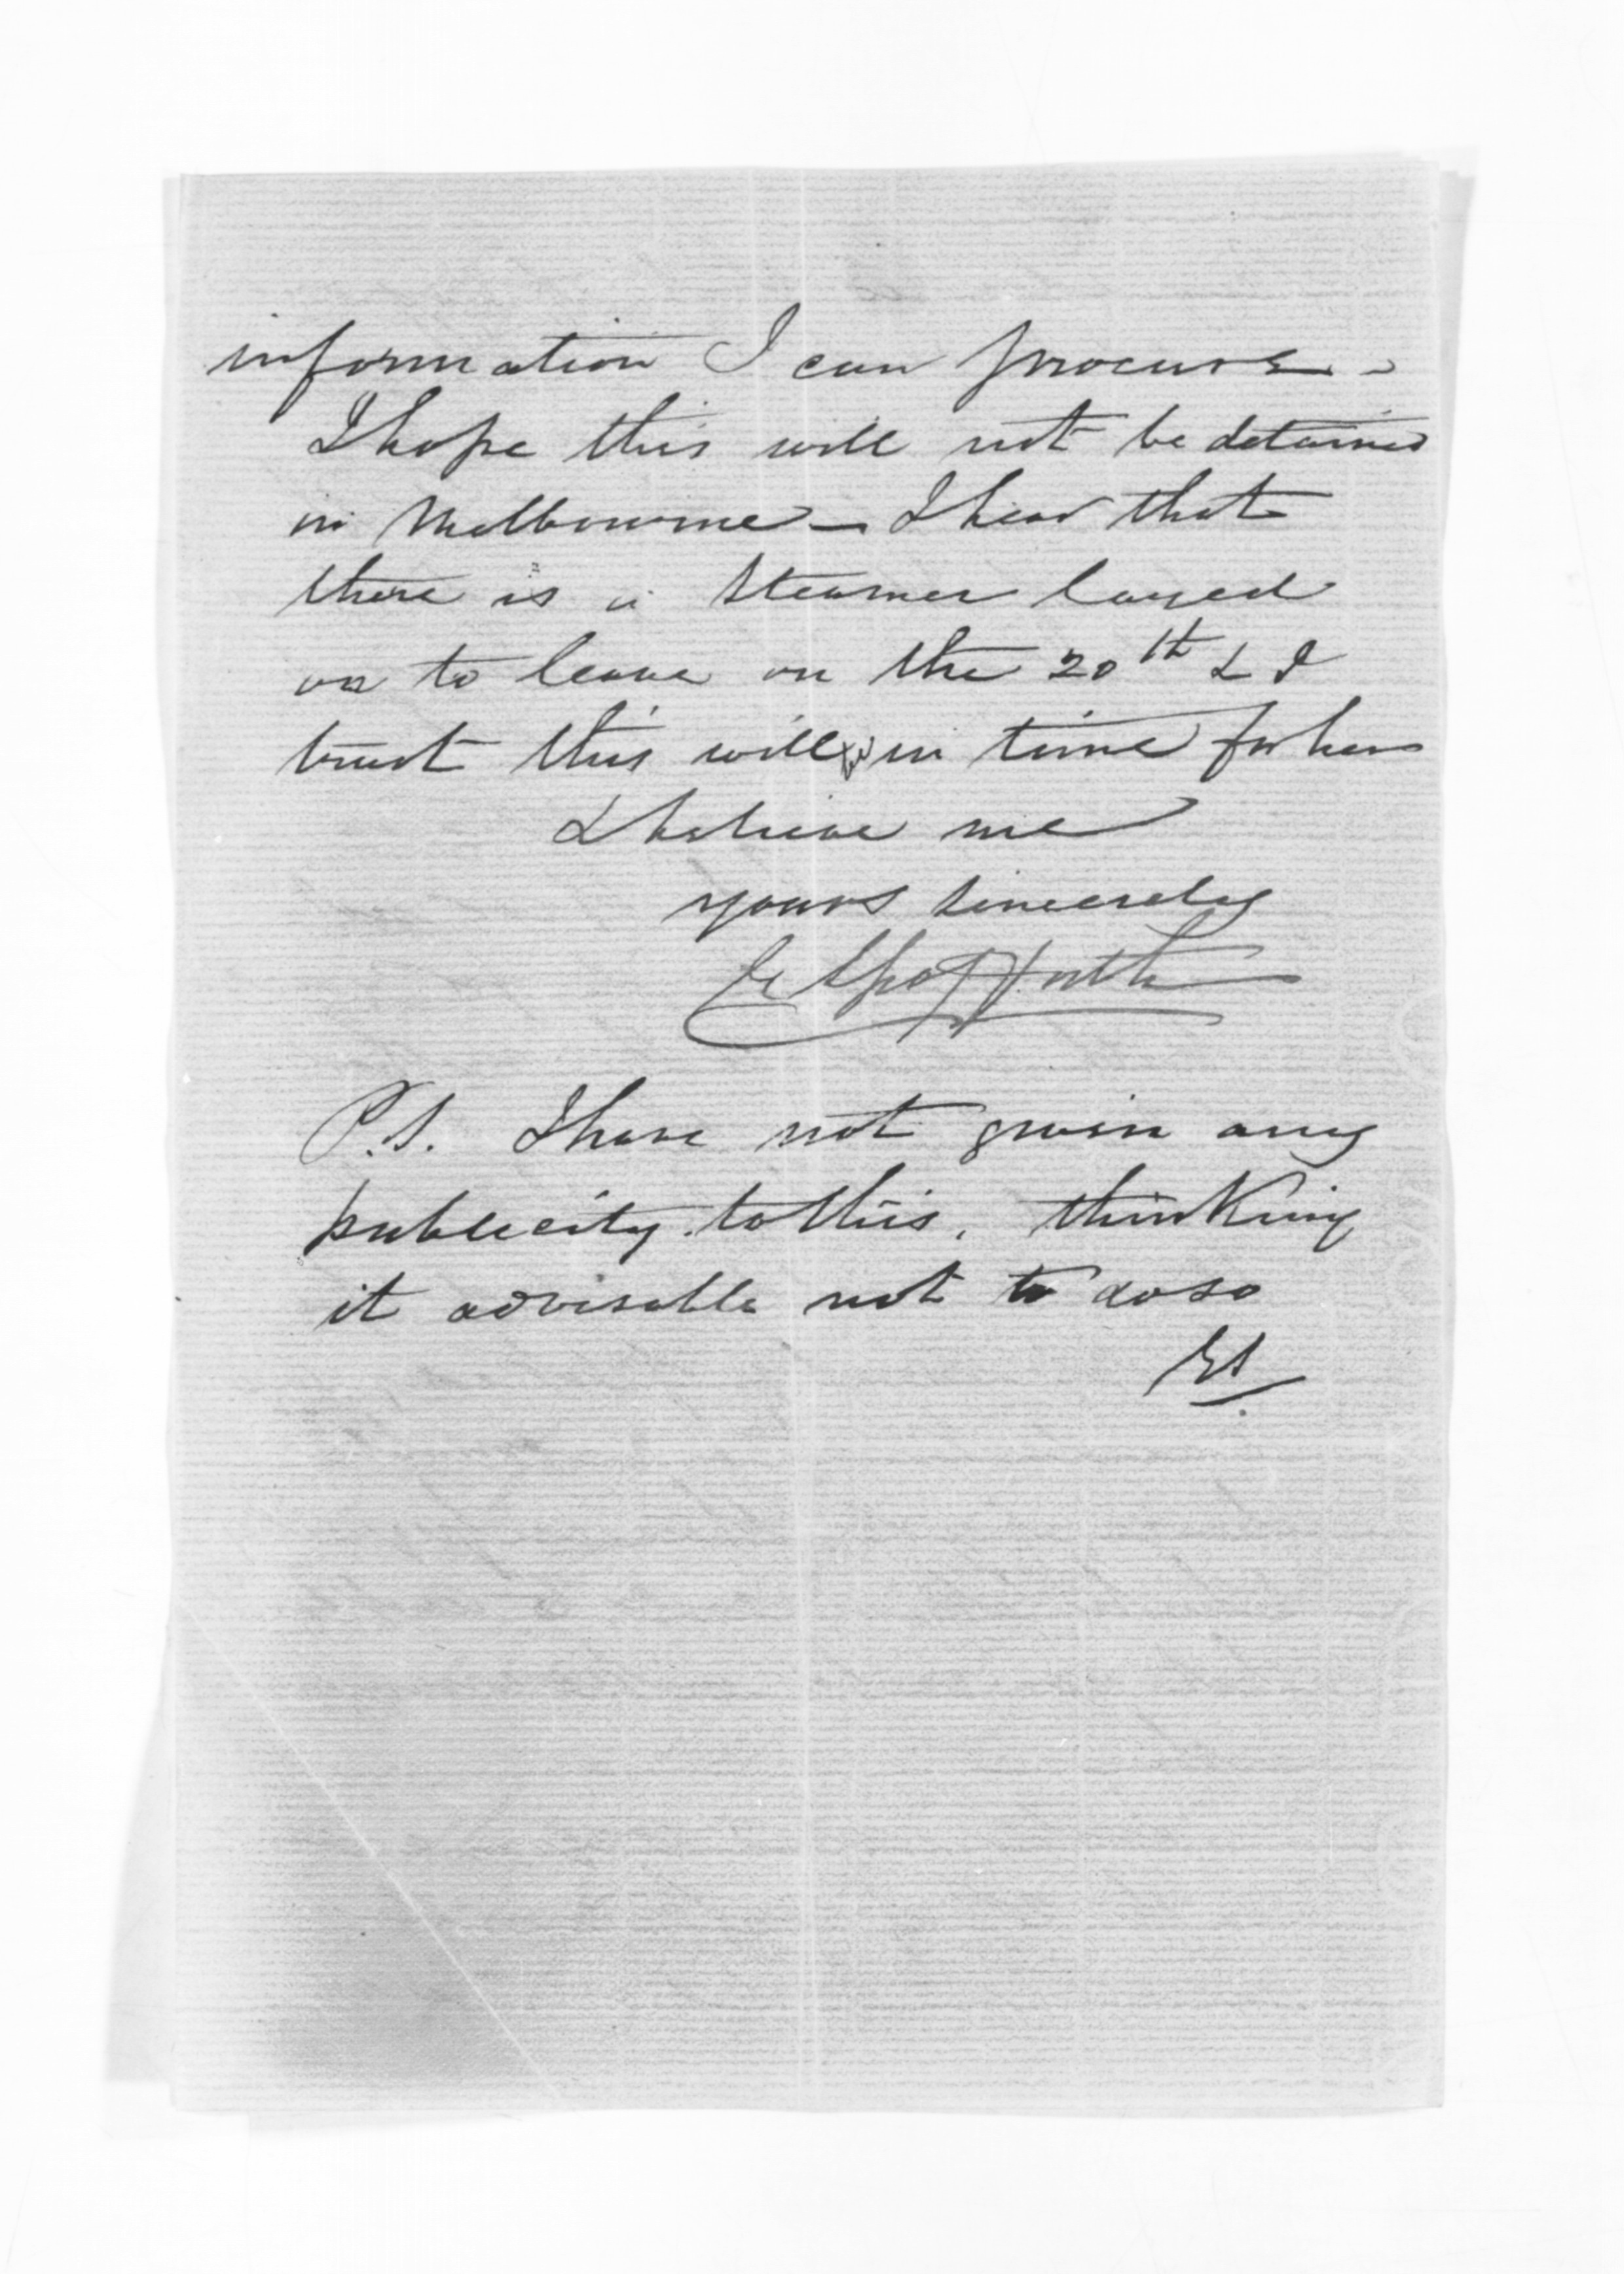 information I can procure -
I hope this will not be detained
in Melbourne - I hear that
there is a Steamer layed
on to leave on the 20th & I
trust this will be in time for her
& believe me
yours sincerely
E Spofforth
P.S. I have not given any
publicity to this, thinking
it advisable not to do so
ES